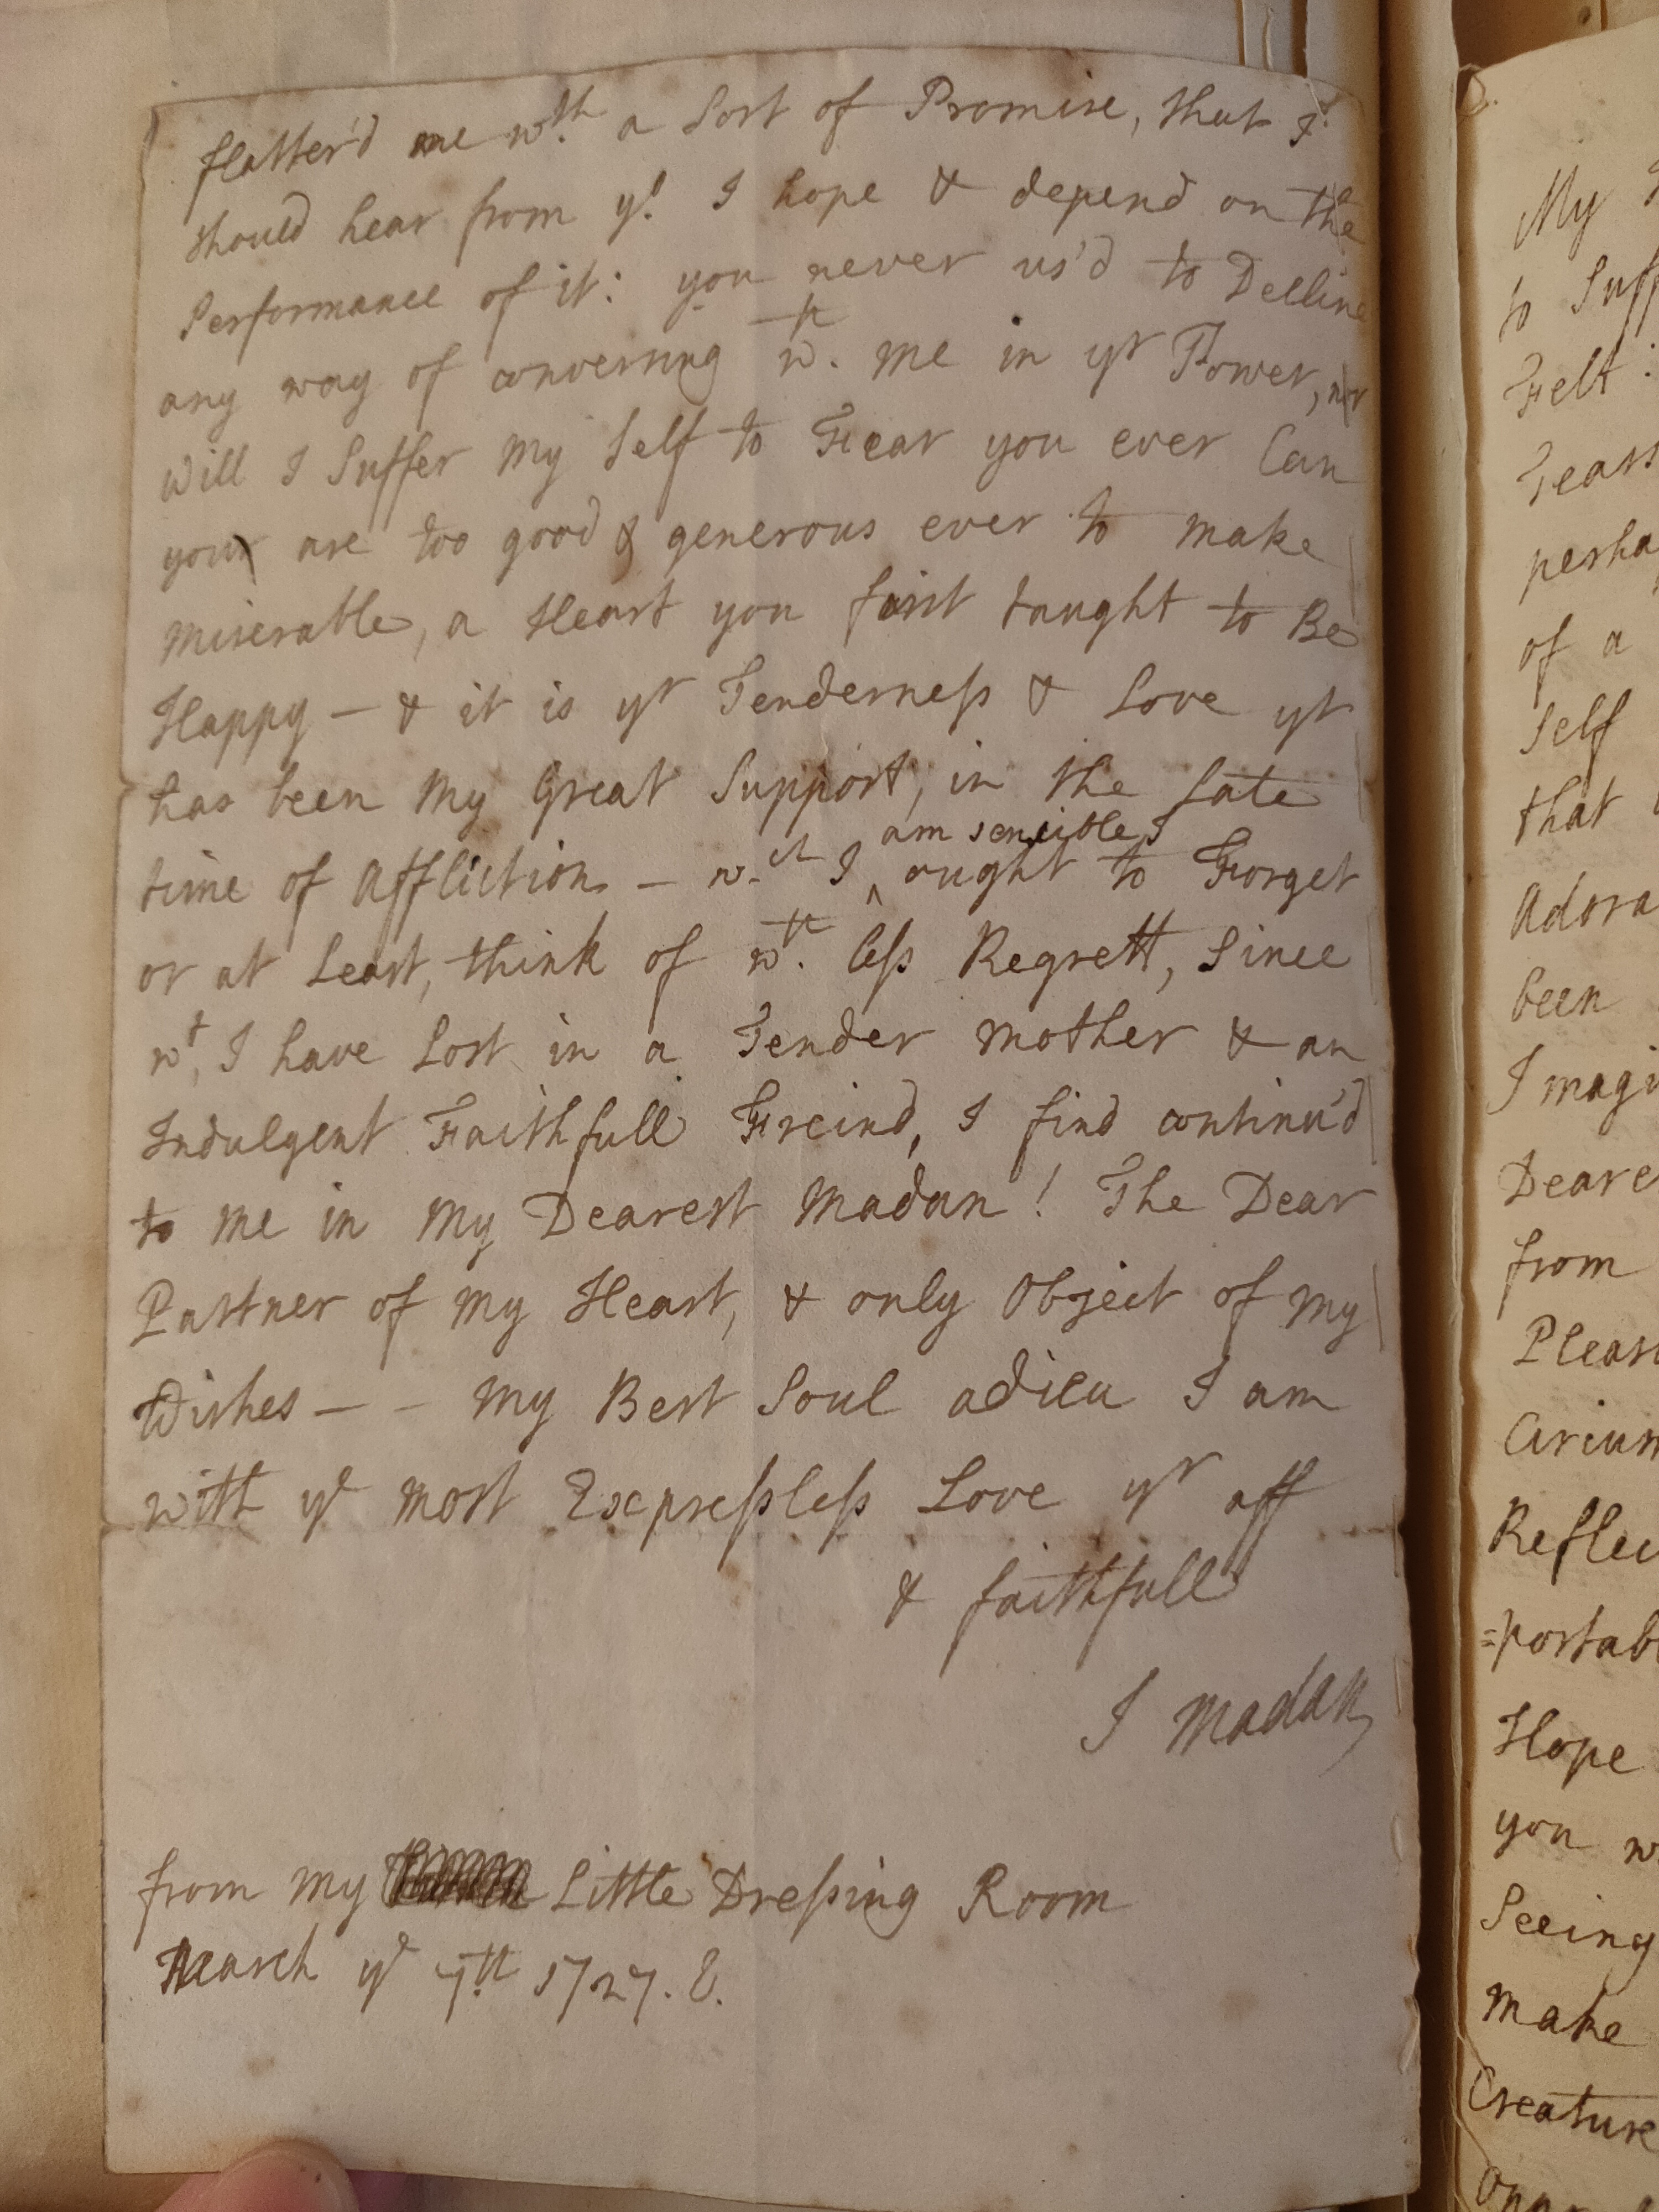 flatter'd me wth. a Sort of Promise, that I
should hear from yu. I hope & depend on the
Performance of it: you never us'd to Decline
any way of conversing wth. me in yr Power, nor
will I Suffer my Self to Fear you ever Can
you are too good & generous ever to make
miserable, a Heart you first taught to Be
Happy — & it is yr Tenderness & Love yt
has been my Great Support, in the late
am sencible I
time of affliction — wch. I ^ ought to Forget
or at Least, think of wth. less Regrett, Since
wt, I have Lost in a Tender mother & an
Indulgent Faithfull Freind, I find continu'd
to me in my Dearest Madan! The Dear
Partner of my Heart, & only Object of my
Wishes — – my Best Soul adieu I am
with ye most Expressless Love yr aff
& faithfull
J Madan
from my Little Dressing Room
March ye 7th 1727. 8.
My
to Suff
Felt:
Tears
perha
of a
Self
that
Adora
been
Imagi
Deare
from
Pleas
Circum
Reflec
=portab
Hope
you w
Seeing
make
Creature